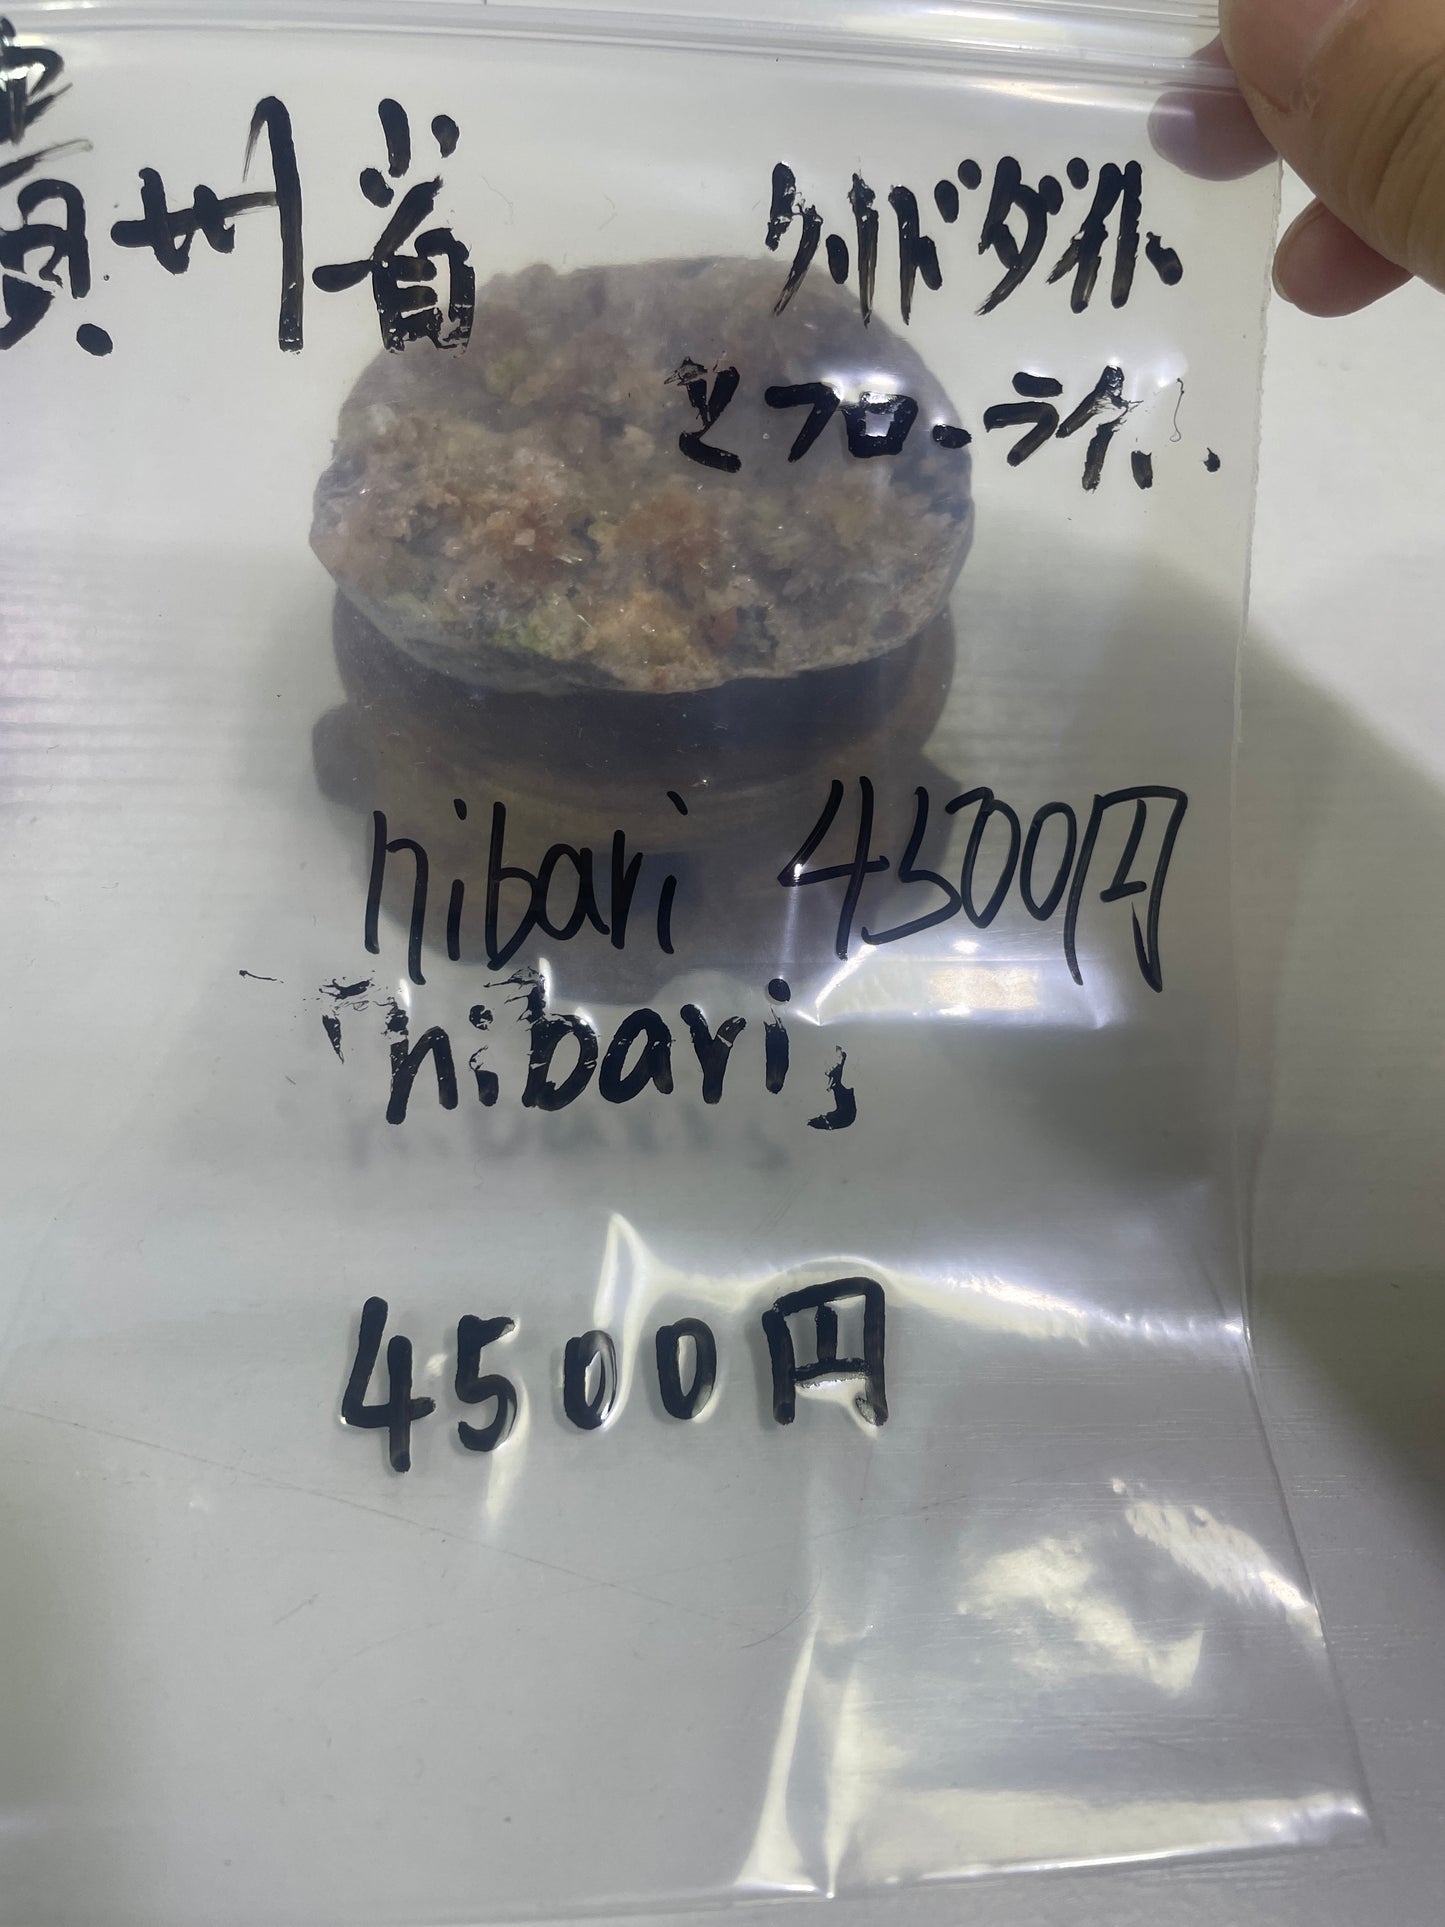 貴州省
クリードダイト
とフローライト
hibari 4500円
「hibari」
4500円